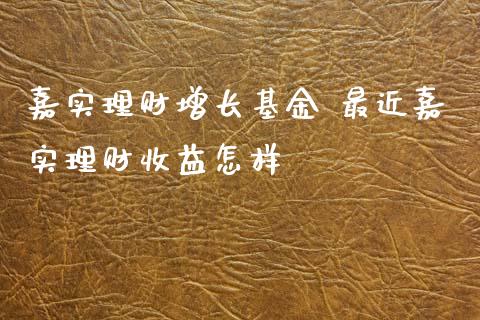 嘉实理财增长基金 最近嘉
实理财收益怎样